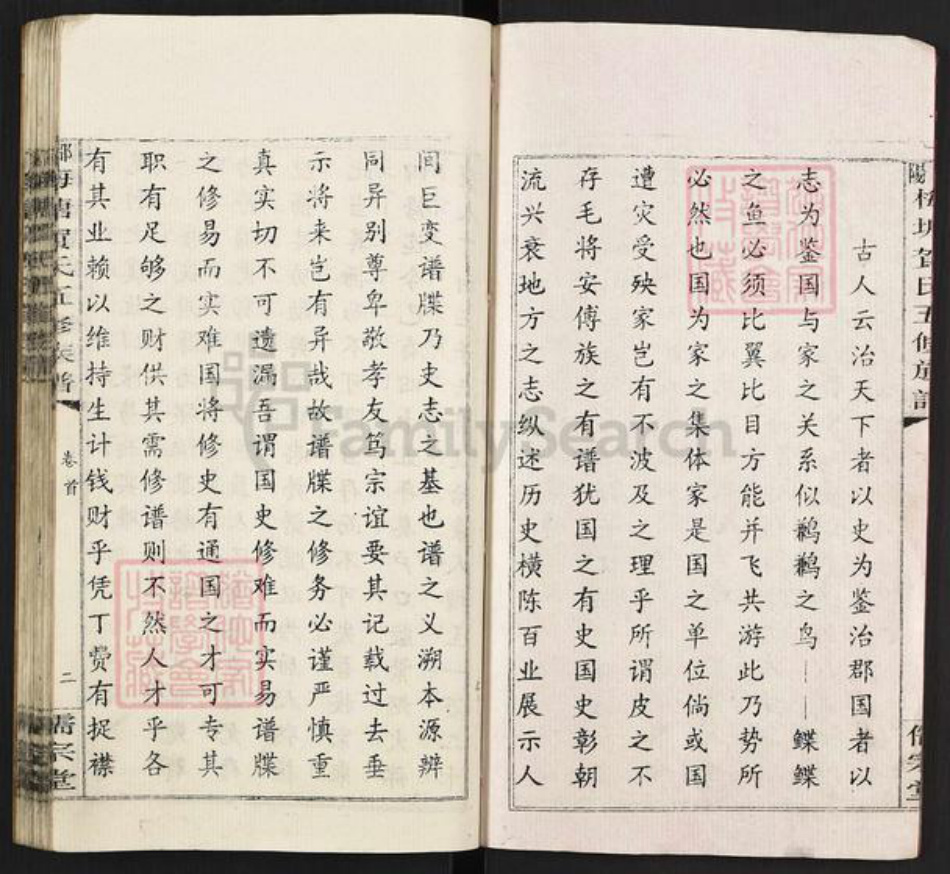 古人云治天下者以史为鉴治郡国者以
志为鉴国与家之关系似鹣鹣之鸟——鲽鲽
之鱼必须比翼比目方能并飞共游此乃势所
必然也国为家之集体家是国之单位倘或国
遭灾受殃家岂有不波及之理乎所谓皮之不
存毛将安傅族之有谱犹国之有史国史彰朝
流兴衰地方之志纵述历史横陈百业展示人
间巨变谱牒乃史志之基也谱之义溯本源辨
同异别尊卑敬孝友笃宗谊要其记载过去垂
示将来岂有异哉故谱牒之修务必谨严慎重
真实切不可遗漏吾谓国史修难而实易谱牒
之修易而实难国将修史有通国之才可专其
职有足够之财供其需修谱则不然人才乎各
有其业赖以维持生计钱财乎凭丁费有捉襟
卷首
二
FamilySearch